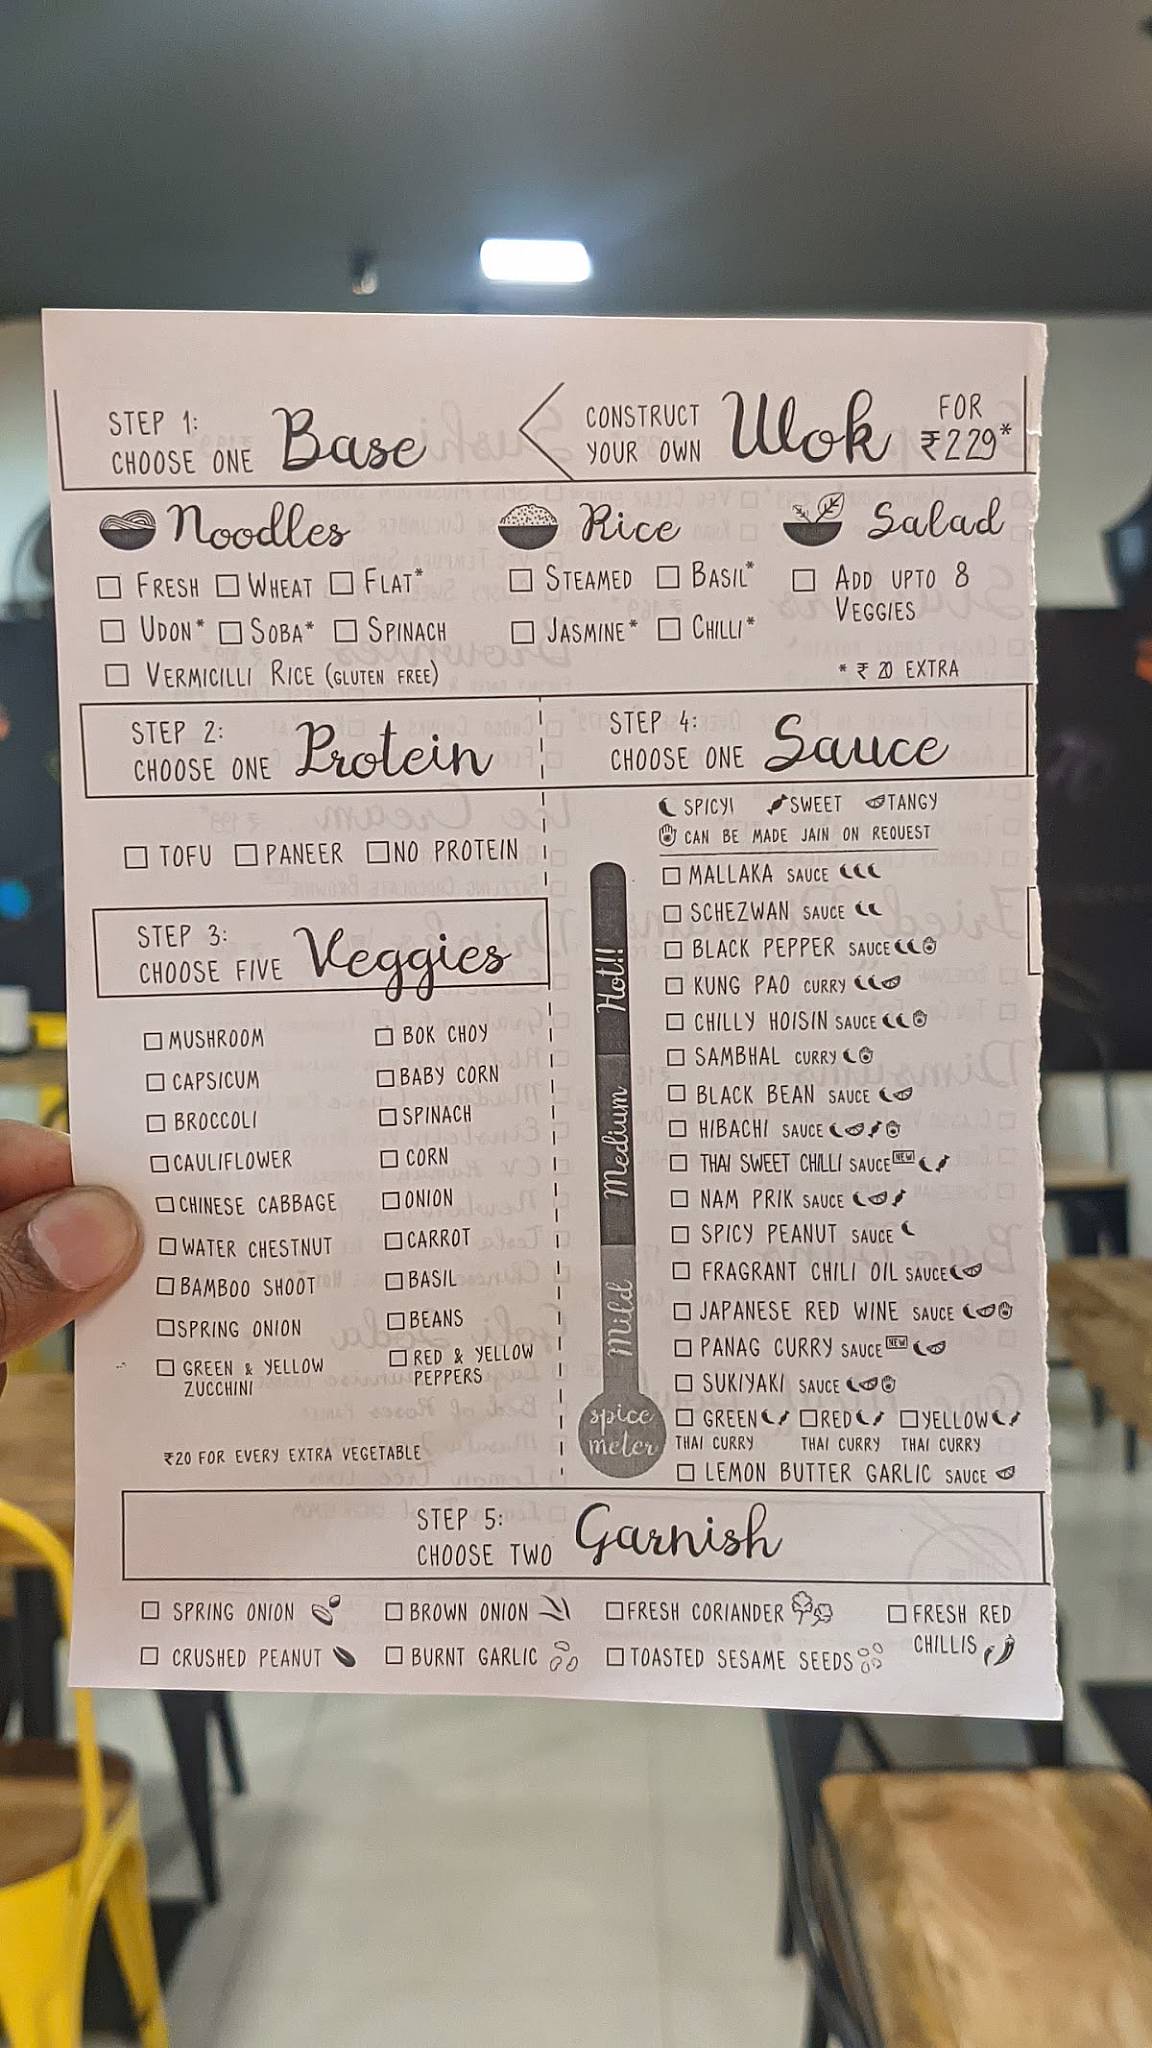 STEP 1:
CHOOSE ONE Base
CONSTRUCT YOUR OWN Wok FOR ₹229*
Noodles
FRESH WHEAT FLAT*
UDON* SOBA* SPINACH
VERMICILLI RICE (GLUTEN FREE)
Rice
STEAMED BASIL*
JASMINE* CHILLI*
Salad
ADD UPTO 8
VEGGIES
* ₹ 20 EXTRA
STEP 2:
CHOOSE ONE Protein
TOFU PANEER NO PROTEIN
STEP 3:
CHOOSE FIVE Veggies
MUSHROOM
CAPSICUM
BROCCOLI
CAULIFLOWER
CHINESE CABBAGE
WATER CHESTNUT
BAMBOO SHOOT
SPRING ONION
GREEN & YELLOW
ZUCCHINI
BOK CHOY
BABY CORN
SPINACH
CORN
ONION
CARROT
BASIL
BEANS
RED & YELLOW
PEPPERS
₹20 FOR EVERY EXTRA VEGETABLE
STEP 4:
CHOOSE ONE Sauce
SPICY! SWEET TANGY
CAN BE MADE JAIN ON REQUEST
Hot!!
Medium
Mild
spice
meter
MALLAKA SAUCE
SCHEZWAN SAUCE
BLACK PEPPER SAUCE
KUNG PAO CURRY
CHILLY HOISIN SAUCE
SAMBHAL CURRY
BLACK BEAN SAUCE
HIBACHI SAUCE
THAI SWEET CHILLI SAUCE NEW
NAM PRIK SAUCE
SPICY PEANUT SAUCE
FRAGRANT CHILI OIL SAUCE
JAPANESE RED WINE SAUCE
PANAG CURRY SAUCE NEW
SUKIYAKI SAUCE
GREEN RED YELLOW
THAI CURRY THAI CURRY THAI CURRY
LEMON BUTTER GARLIC SAUCE
STEP 5:
CHOOSE TWO Garnish
SPRING ONION BROWN ONION FRESH CORIANDER FRESH RED
CHILLIS
CRUSHED PEANUT BURNT GARLIC TOASTED SESAME SEEDS